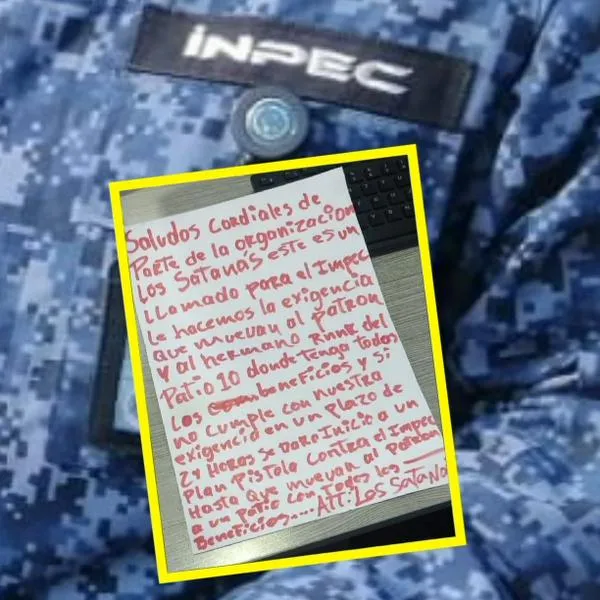 INPEC
Saludos cordiales de
Parte de la organizacion
Los Satanás este es un
LLamado para el Impec
Le hacemos la exigencia
que muevan al Patron
y al hermano del
Patio 10 donde tenga todos
Los beneficios y si
no cumple con nuestra
exigencia en un plazo de
24 Horas se Dare Inicio a un
Plan Pistola contra el Impec
Hasta que muevan al Patron
a un patio con todos los
Beneficios.... ATT: Los Satana